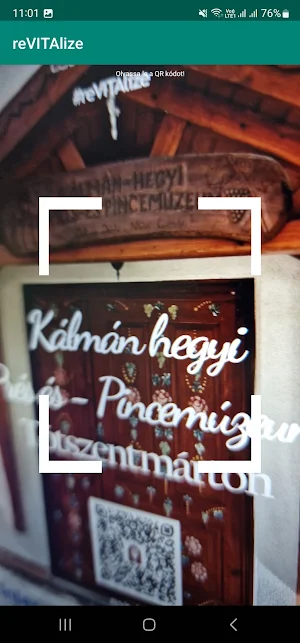 11:01
76%
reVITAlize
Olvassa le a QR kódot!
#reVITAlize
KÁLMÁN-HEGYI
PINCEMÚZEUM
Kálmán hegyi
Pincemúzeum
Tótszentmárton